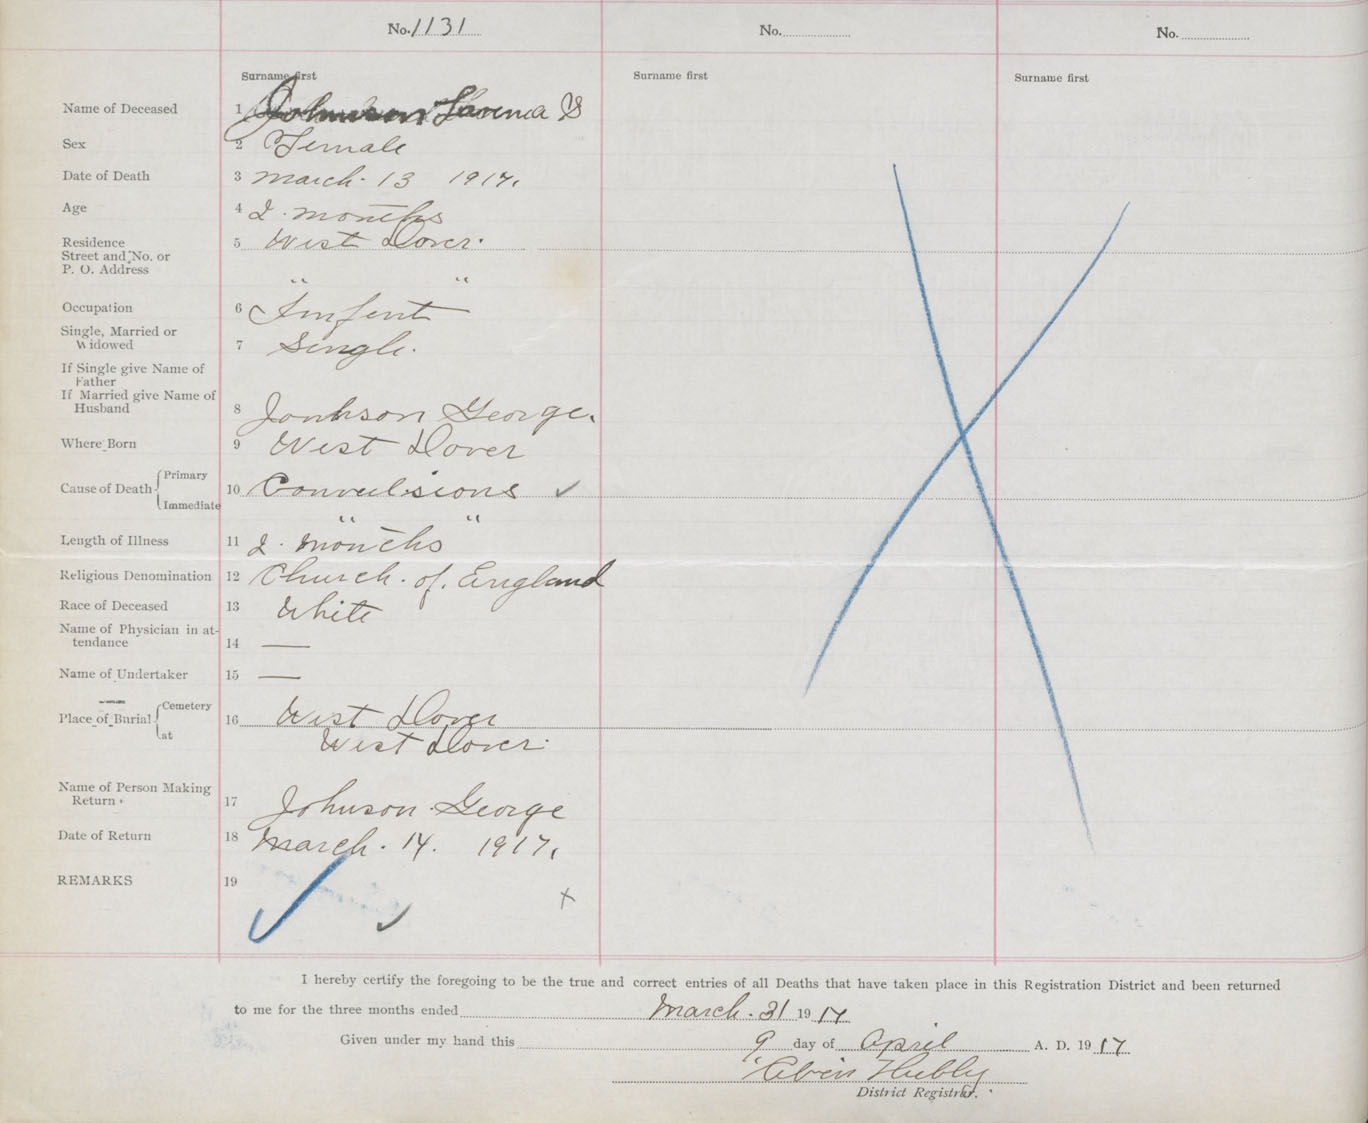 No. 1131 No. No.
Surname first Surname first Surname first
Name of Deceased 1 Johnson S
Sex 2 Female
Date of Death 3 march. 13 1917.
Age 4 2. months
Residence 5 West Dover.
Street and No. or
P. O. Address
" "
Occupation 6 Infent
Single, Married or
Widowed 7 Single.
If Single give Name of
Father
If Married give Name of
Husband 8 Jonhson George.
Where Born 9 West Dover
Cause of Death Primary
10 Convulsions ✓
Immediate
" "
Length of Illness 11 2. months
Religious Denomination 12 Church. of. England
Race of Deceased 13 White
Name of Physician in at-
tendance 14 —
Name of Undertaker 15 —
Place of Burial Cemetery 16 West Dover
at West Dover.
Name of Person Making
Return 17 Johnson. George
Date of Return 18 March. 14. 1917.
REMARKS 19
I hereby certify the foregoing to be the true and correct entries of all Deaths that have taken place in this Registration District and been returned
to me for the three months ended March. 31 1917
Given under my hand this 9 day of April A. D. 1917
Hubly
District Registrar.